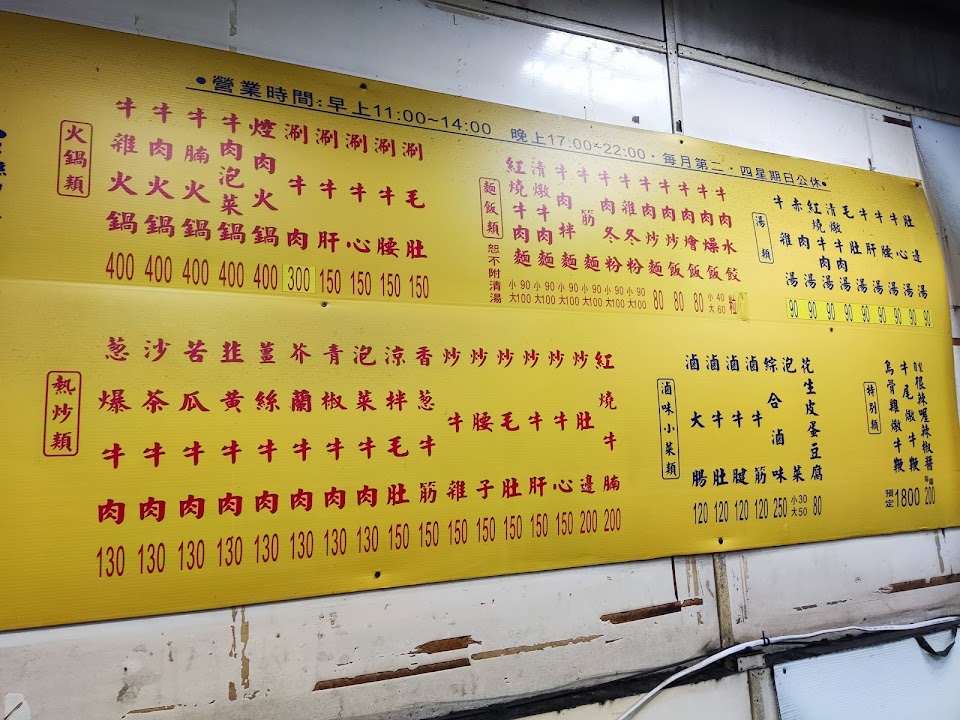 •營業時間:早上11:00~14:00 晚上17:00~22:00•每月第二•四星期日公休•
火鍋類
牛雜火鍋 400
牛肉火鍋 400
牛腩火鍋 400
牛肉泡菜鍋 400
焢肉火鍋 400
涮牛肉 300
涮牛肝 150
涮牛心 150
涮牛腰 150
涮毛肚 150
麵飯類
恕不附清湯
紅燒牛肉麵 小90 大100
清燉牛肉麵 小90 大100
牛肉拌麵 小90 大100
牛筋麵 小90 大100
牛肉冬粉 小90 大100
牛雜冬粉 小90 大100
牛肉炒麵 80
牛肉炒飯 80
牛肉燴飯 80
牛肉燥飯 小40 大60
牛肉水餃 粒
湯類
牛雜湯 90
赤肉湯 90
紅燒牛肉湯 90
清燉牛肉湯 90
毛肚湯 90
牛肝湯 90
牛腰湯 90
牛心湯 90
肚邊湯 90
熱炒類
蔥爆牛肉 130
沙茶牛肉 130
苦瓜牛肉 130
韭黃牛肉 130
薑絲牛肉 130
芥蘭牛肉 130
青椒牛肉 130
泡菜牛肉 130
涼拌毛肚 150
香蔥牛筋 150
炒牛雜 150
炒腰子 150
炒毛肚 150
炒牛肝 150
炒牛心 150
炒肚邊 200
紅燒牛腩 200
滷味小菜類
滷大腸 120
滷牛肚 120
滷牛腱 120
滷牛筋 120
綜合滷味 250
泡菜 小30 大50
花生皮蛋豆腐 80
特別類
烏骨雞燉牛鞭
牛尾燉牛鞭
預定1800
自製狠辣喔辣椒醬
200